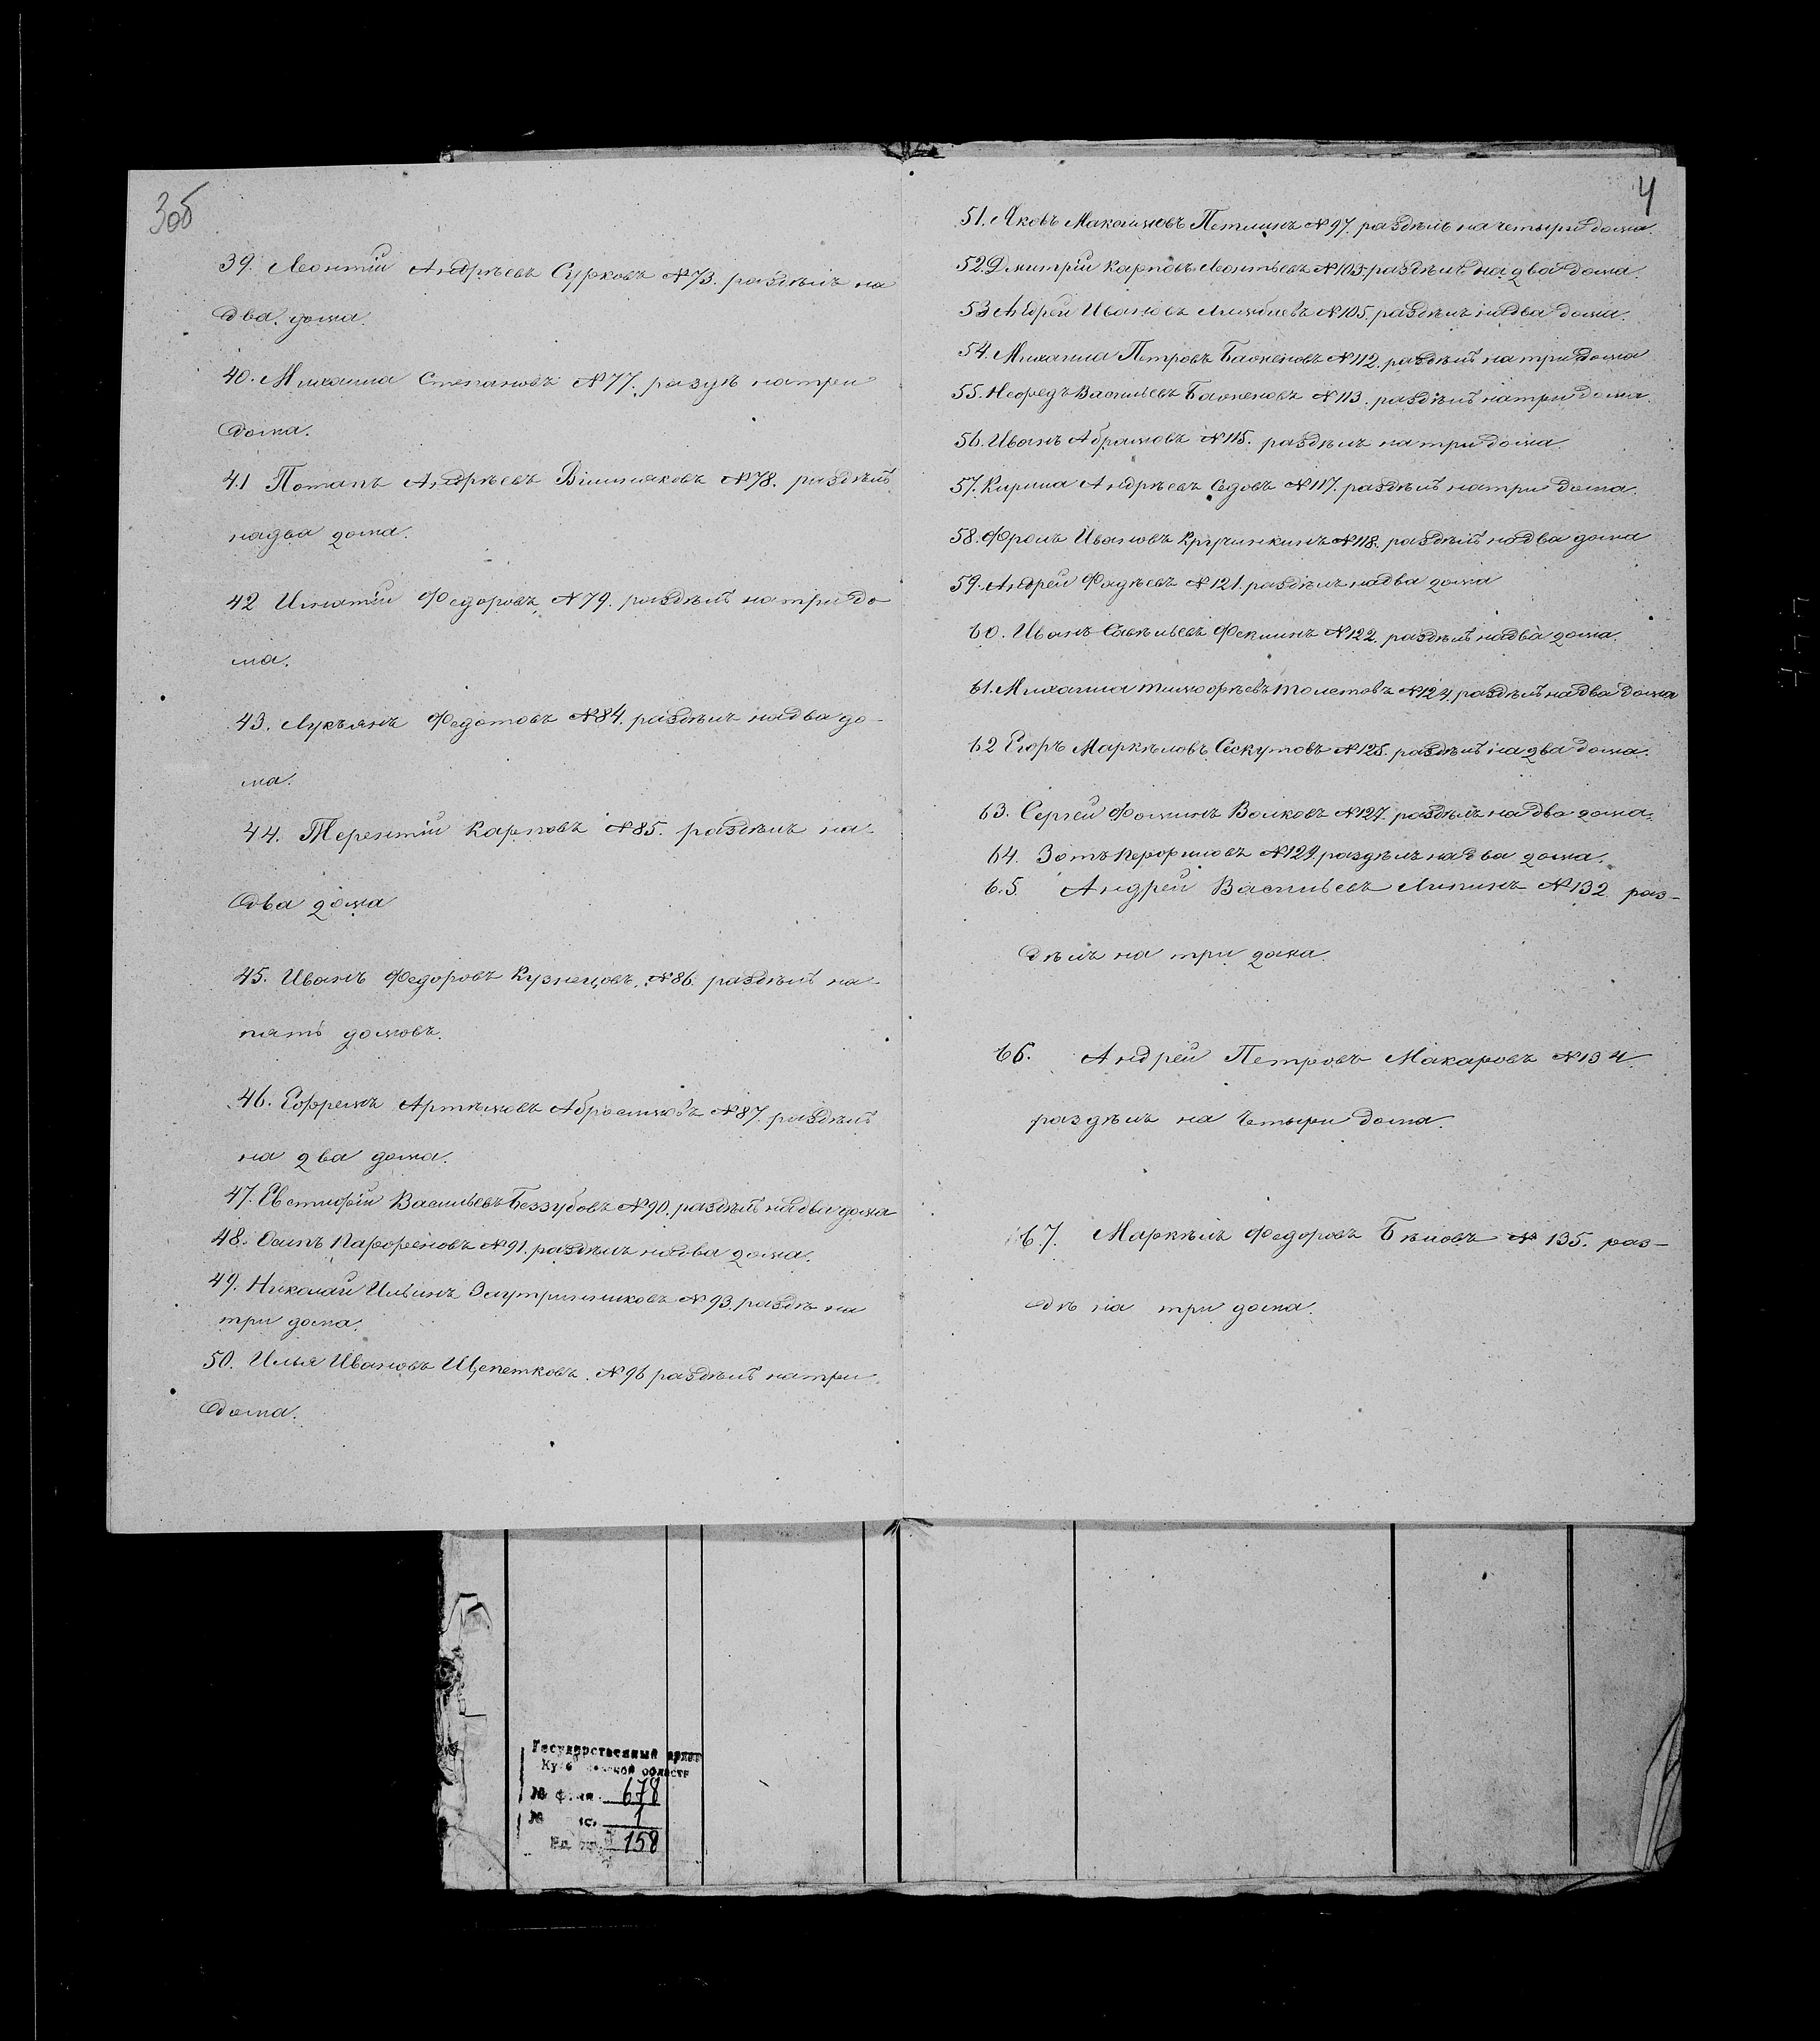 3об
39. Леонтій Андрѣевъ Сурковъ №73. раздѣлъ на
два. дома.
40. Михаила Степановъ №77. раздѣ натри
дома.
41 Потапъ Андрѣевъ №78. раздѣлъ
надва дома.
42 Игнатій Федоровъ №79. раздѣлъ натри до
ма.
43. Лукъянъ Федотовъ №84. раздѣлъ надва до-
ма.
44. Терентій Карповъ №85. раздѣлъ на-
два дома
45. Иванъ Федоровъ Кузнецовъ. №86. раздѣлъ на-
пять домовъ.
46. Ефремъ Артѣмовъ Абросимовъ №87. раздѣлъ
на два дома.
47. Евстифій Васильевъ Беззубовъ №90. раздѣлъ надва дома
48. Осипъ Парфеновъ №91. раздѣлъ надва дома.
49. Николай Ильинъ Заутринниковъ №93. раздѣ на
три дома.
50. Илья Ивановъ Щепетковъ. №96 раздѣлъ натри
дома.
4
51. Яковъ Максимовъ Петлинъ №97. раздѣлъ на четыри дома.
52. Дмитрій Карповъ Леонтьевъ №103. раздѣлъ на два дома.
53 Андрей Ивановъ №105. раздѣлъ надва дома.
54. Михаила Петровъ №112. раздѣлъ на три дома
55. Нефедъ Васильевъ №113. раздѣлъ натри дома.
56. Иванъ Абрамовъ №115. раздѣлъ на три дома.
57. Кирила Андрѣевъ Седовъ №117. раздѣлъ натри дома.
58. Фролъ Ивановъ Кручинкинъ №118. раздѣлъ надва дома
59. Андрей Фадѣевъ №121. раздѣлъ надва дома
60. Иванъ Савѣльевъ Феклинъ №122. раздѣлъ надва дома.
61. Михаила Тимофѣевъ Толстовъ №124. раздѣлъ надва дома
62 Егоръ Маркѣловъ Секутовъ №125. раздѣлъ на два дома.
63. Сергей Фоминъ Волковъ №127. раздѣлъ на два дома.
64. Зотъ №129. раздѣлъ надва дома.
65. Андрей Васильевъ Липинъ №132. раз-
дѣлъ на три дома.
66. Андрей Петровъ Макаровъ №134.
раздѣлъ на четыри дома.
67. Маркѣлъ Федоровъ Бѣловъ №135. раз-
дѣ на три дома.
Государственный архив
области
№ 678
№ 1
158